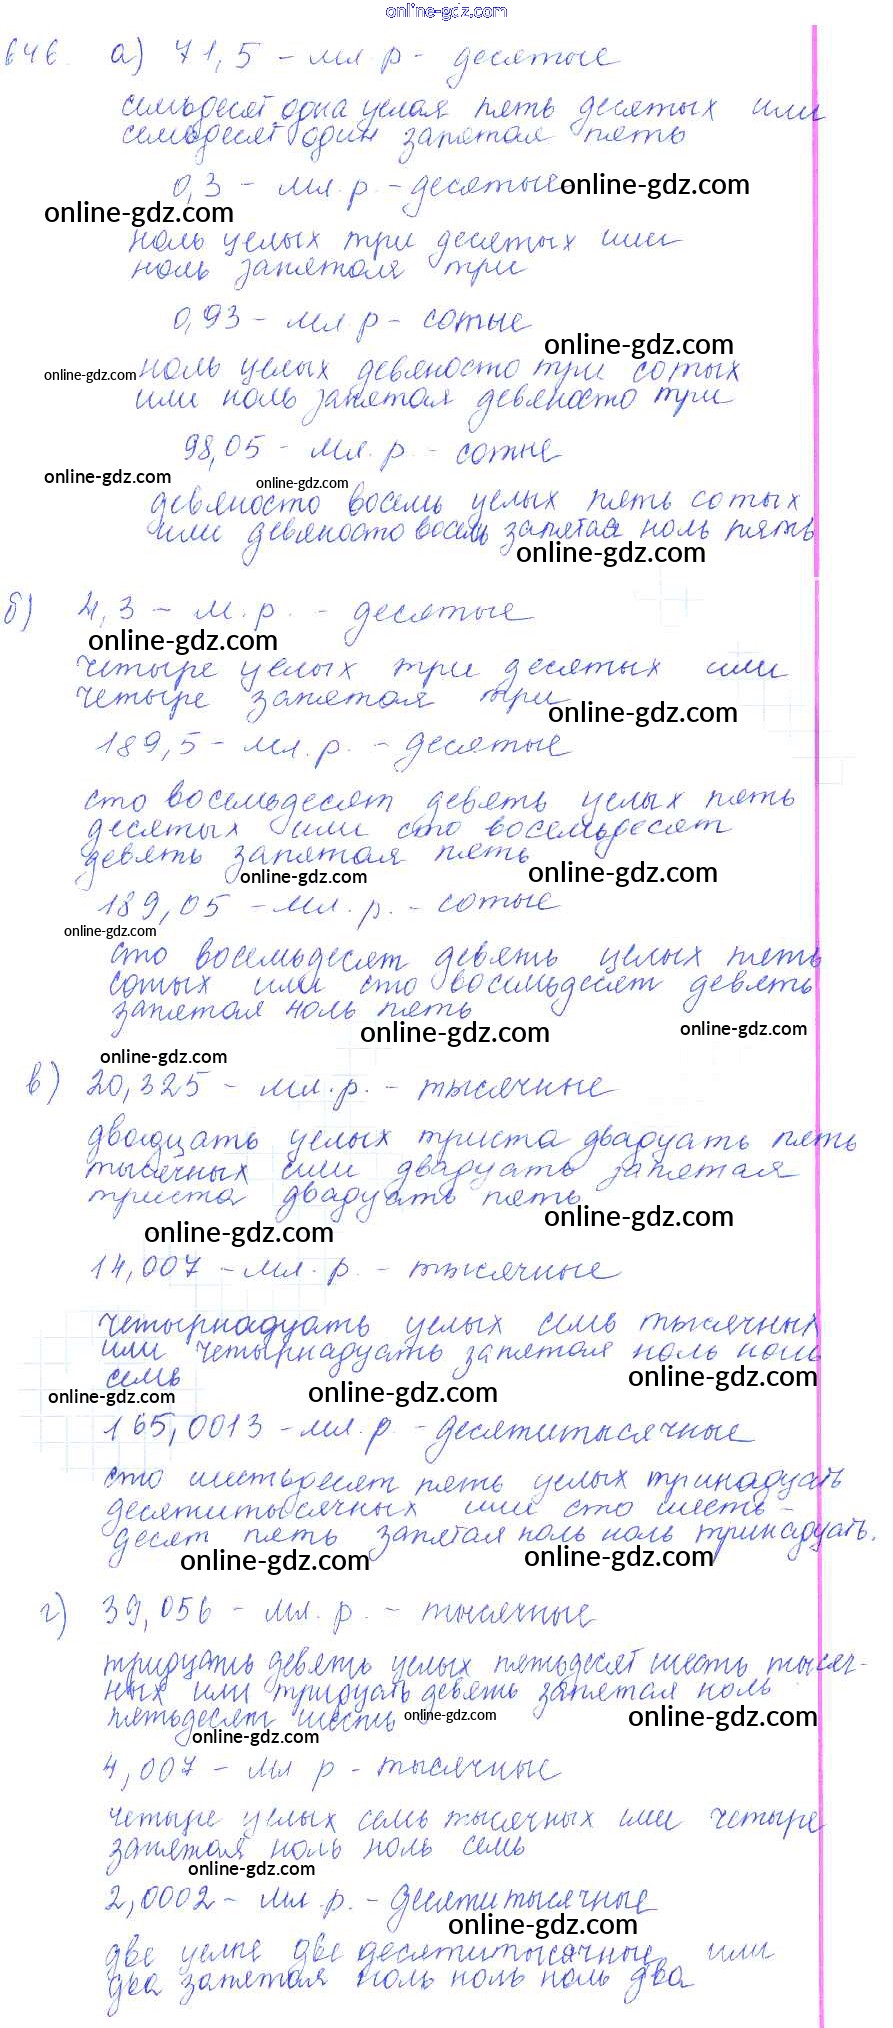 online-gdz.com
646. а) 71,5 - мл. р - десятые
семьдесят одна целая пять десятых или
семьдесят один запятая пять
0,3 - мл. р. - десятые
online-gdz.com
online-gdz.com
ноль целых три десятых или
ноль запятая три
0,93 - мл р - сотые
online-gdz.com
online-gdz.com
ноль целых девяносто три сотых
или ноль запятая девяносто три
98,05 - мл. р. - сотые
online-gdz.com
online-gdz.com
девяносто восемь целых пять сотых
или девяносто восемь запятая ноль пять
online-gdz.com
б) 4,3 - м. р. - десятые
online-gdz.com
четыре целых три десятых или
четыре запятая три
online-gdz.com
189,5 - мл. р. - десятые
сто восемьдесят девять целых пять
десятых или сто восемьдесят
девять запятая пять
online-gdz.com
online-gdz.com
189,05 - мл. р. - сотые
online-gdz.com
сто восемьдесят девять целых пять
сотых или сто восемьдесят девять
запятая ноль пять
online-gdz.com
online-gdz.com
online-gdz.com
в) 20,325 - мл. р. - тысячные
двадцать целых триста двадцать пять
тысячных или двадцать запятая
триста двадцать пять
online-gdz.com
online-gdz.com
14,007 - мл. р. - тысячные
четырнадцать целых семь тысячных
или четырнадцать запятая ноль ноль
семь
online-gdz.com
online-gdz.com
online-gdz.com
165,0013 - мл. р. - десятитысячные
сто шестьдесят пять целых тринадцать
десятитысячных или сто шесть-
десят пять запятая ноль ноль тринадцать.
online-gdz.com
online-gdz.com
г) 39,056 - мл. р. - тысячные
тридцать девять целых пятьдесят шесть тысяч-
ных или тридцать девять запятая ноль
пятьдесят шесть
online-gdz.com
online-gdz.com
online-gdz.com
4,007 - мл р - тысячные
четыре целых семь тысячных или четыре
запятая ноль ноль семь
online-gdz.com
2,0002 - мл. р. - десятитысячные
online-gdz.com
две целые две десятитысячные или
два запятая ноль ноль ноль два